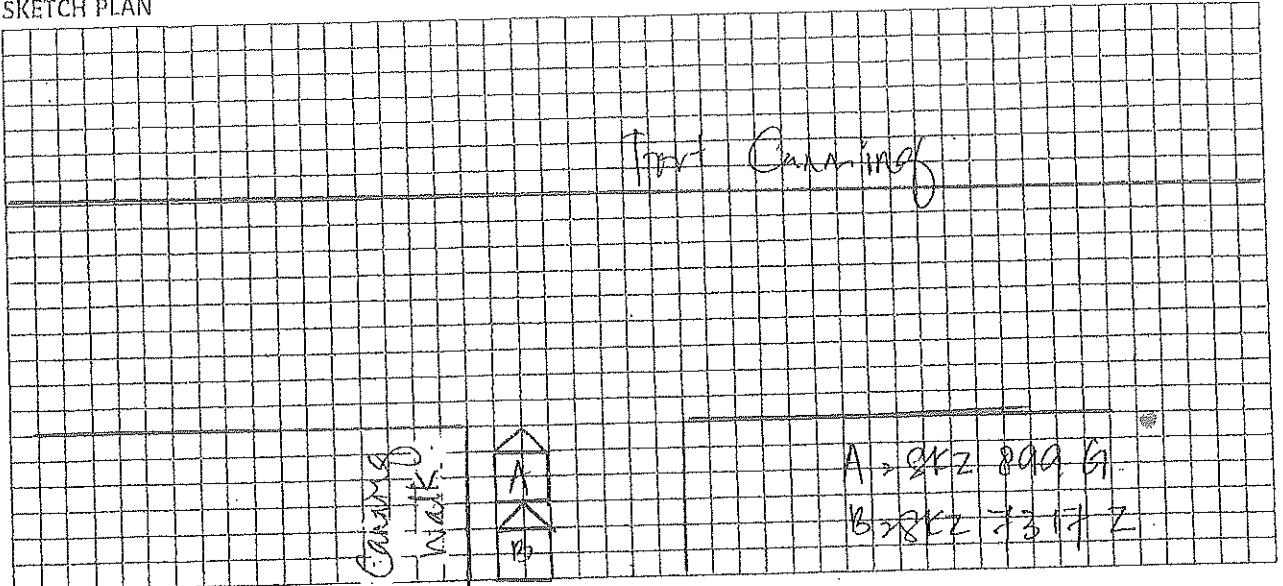 SKETCH PLAN
Fort Canning
Canning
Walk
A
B
A > SKZ 899 G
B > SKZ 7317 Z